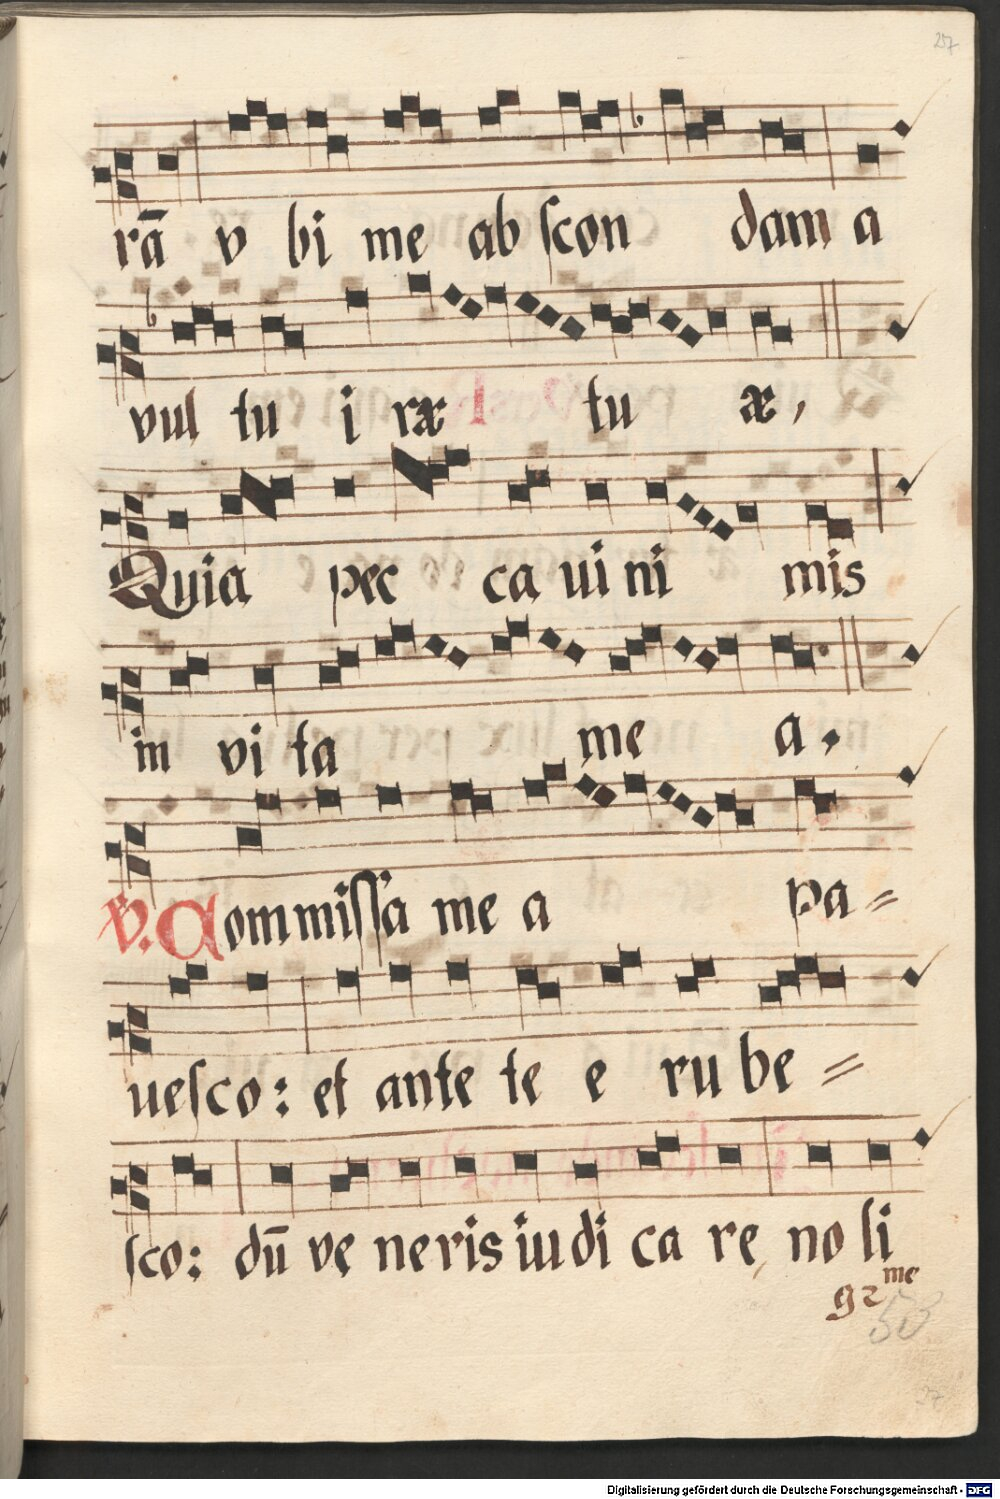 257
rā v bi me ab ſcon dam a
vul tu i ræ tu æ,
Quia pec ca ui ni mis
in vi ta me a.
℣. Commiſſa me a pa=
ueſco: et ante te e ru be=
ſco: dū vę neris iudi ca rę, no li
me
53
Digitalisierung gefördert durch die Deutsche Forschungsgemeinschaft - DFG